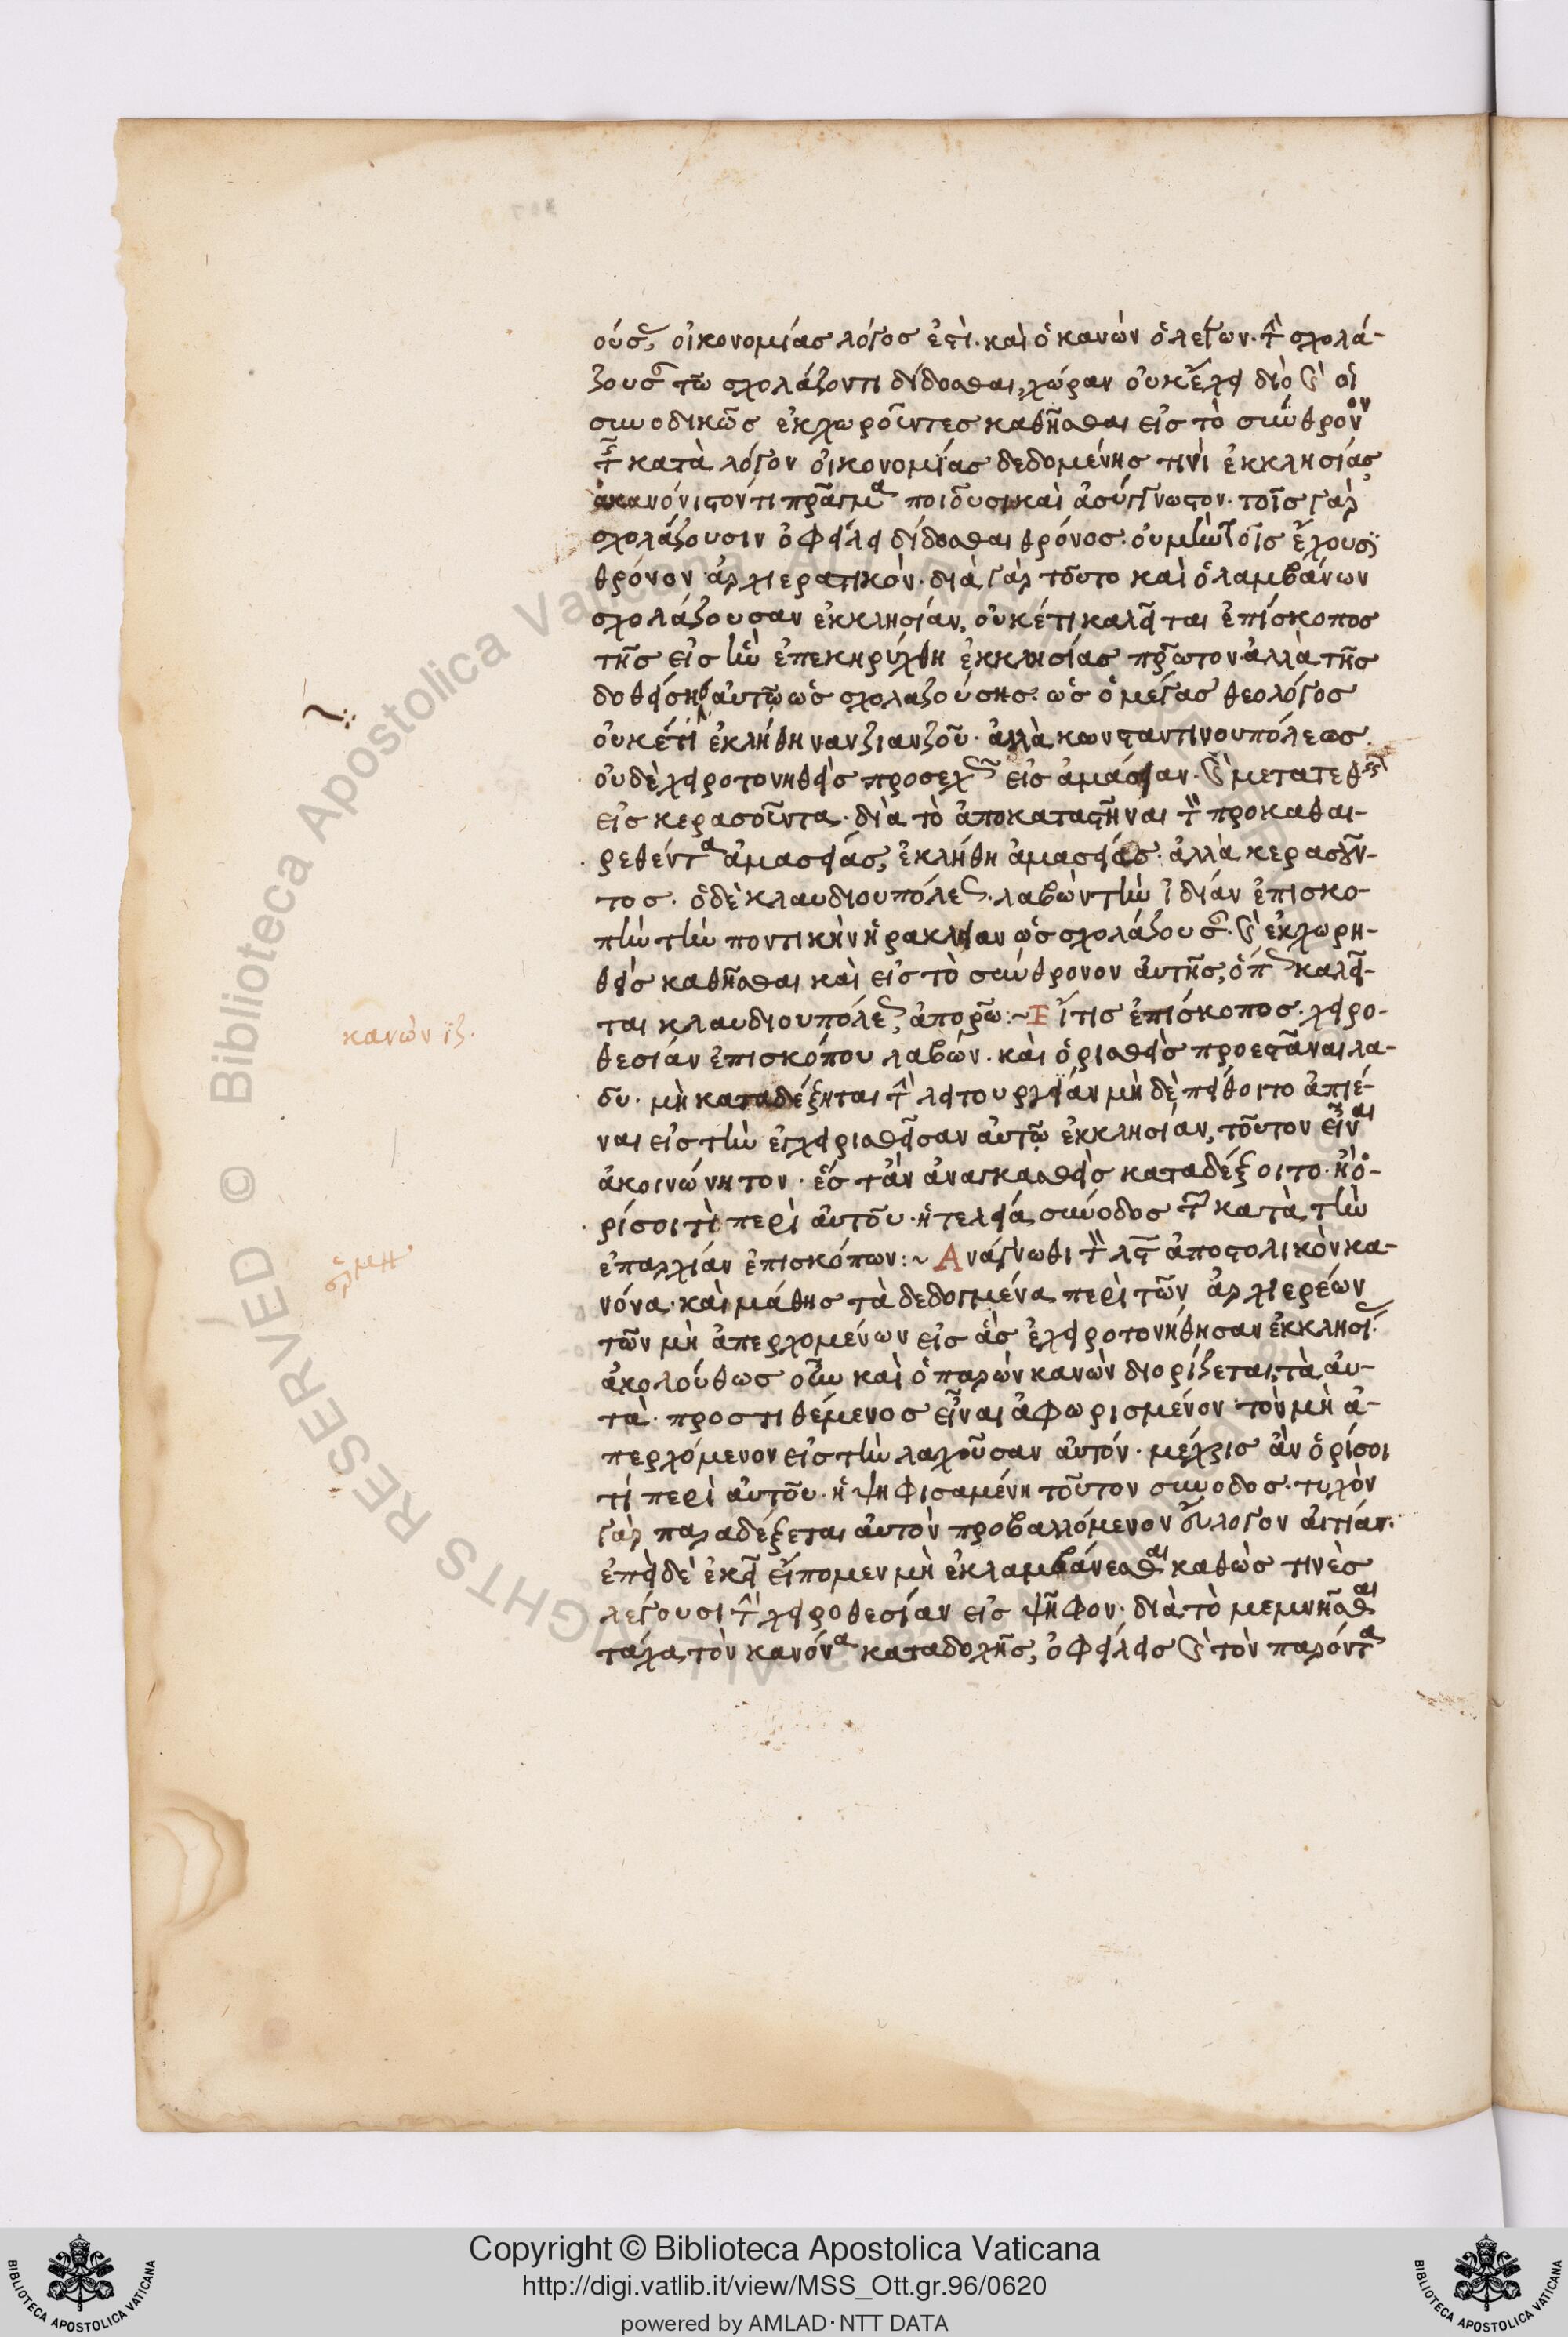 ούσης, οἰκονομίας λόγος ἐστὶ. καὶ ὁ κανὼν ὁ λέγων. τὴν σχολά-
ζουσαν τῶ σχολάζοντι δίδοσθαι, χώραν οὐκ ἔχει διὸ καὶ οἱ
συνοδικῶς ἐκχωροῦντες καθῆσθαι εἰς τὸ σύνθρονον
τῆς κατὰ λόγον οἰκονομίας δεδομένης τινὶ ἐκκλησίας
ἀκανόνιστόν τι πρᾶγμα ποιοῦσι καὶ ἀσύγγνωστον. τοῖς γὰρ
σχολάζουσιν ὀφείλει δίδοσθαι θρόνος. οὐ μὴν τοῖς ἔχουσι
θρόνον ἀρχιερατικὸν. διὰ γὰρ τοῦτο καὶ ὁ λαμβάνων
σχολάζουσαν ἐκκλησίαν, οὐκέτι καλεῖται ἐπίσκοπος
τῆς εἰς ἣν ἐπεκηρύχθη ἐκκλησίας πρῶτον ἀλλὰ τῆς
δοθείσης αὐτῶ ὡς σχολαζούσης. ὡς ὁ μέγας θεολόγος
οὐκέτι ἐκλήθη νανζιανζοῦ. ἀλλὰ κωνσταντινουπόλεως.
οὐδὲ χειροτονηθεὶς προσεχῶς εἰς ἀμάσειαν. καὶ μετατεθεὶς
εἰς κερασοῦντα. διὰ τὸ ἀποκαταστῆναι τὸν προκαθαι-
ρεθέντα ἀμασείας, ἐκλήθη ἀμασείας. ἀλλὰ κερασοῦν-
τος. ὁ δὲ κλαυδιουπόλεως. λαβὼν τὴν ἰδίαν ἐπισκο-
πὴν τὴν ποντικὴν ἡρακλείαν ὡς σχολάζουσαν. καὶ ἐκχωρη-
θεὶς καθῆσθαι καὶ εἰς τὸ σύνθρονον αὐτῆς, ὅπως καλεῖ-
ται κλαυδιουπόλεως, ἀπορῶ:~ Εἴ τις ἐπίσκοπος. χειρο-
θεσίαν ἐπισκόπου λαβών. καὶ ὁρισθεὶς προεστάναι λα-
οῦ. μὴ καταδέξηται τὴν λειτουργείαν μὴ δὲ πείθοιτο ἀπιέ-
ναι εἰς τὴν ἐγχειρισθεῖσαν αὐτῶ ἐκκλησίαν, τοῦτον εἶναι
ἀκοινώνητον. ἔς τ' ἂν ἀναγκασθεὶς καταδέξοιτο. ἢ ὁ-
ρίσοι τὶ περὶ αὐτοῦ. ἡ τελεία σύνοδος τῶν κατὰ τὴν
ἐπαρχίαν ἐπισκόπων:~ Ἀνάγνωθι τὸν λϛ ἀποστολικὸν κα-
νόνα. καὶ μάθης τὰ δεδογμένα περὶ τῶν ἀρχιερέων
τῶν μὴ ἀπερχομένων εἰς ἃς ἐχειροτονήθησαν ἐκκλησίας.
ἀκολούθως οὖν καὶ ὁ παρὼν κανὼν διορίζεται, τὰ αὐ-
τὰ. προστιθέμενος εἶναι ἀφωρισμένον τὸν μὴ ἀ-
περχόμενον εἰς τὴν λαχοῦσαν αὐτόν. μέχρις ἂν ὁρίσοι
τί περὶ αὐτοῦ. ἡ ψηφισαμένη τοῦτον σύνοδος. τυχὸν
γὰρ παραδέξεται αὐτὸν προβαλλόμενον εὔλογον αἰτίαν.
ἐπεὶ δὲ ἐκεῖ εἴπομεν μὴ ἐκλαμβάνεσθαι καθὼς τινὲς
λέγουσι τὴν χειροθεσίαν εἰς ψῆφον. διὰ τὸ μεμνῆσθαι
τάχα τὸν κανόνα καταδοχῆς, ὀφείλεις καὶ τὸν παρόντα
κανὼν ιζ.
Copyright © Biblioteca Apostolica Vaticana
http://digi.vatlib.it/view/MSS_Ott.gr.96/0620
powered by AMLAD·NTT DATA